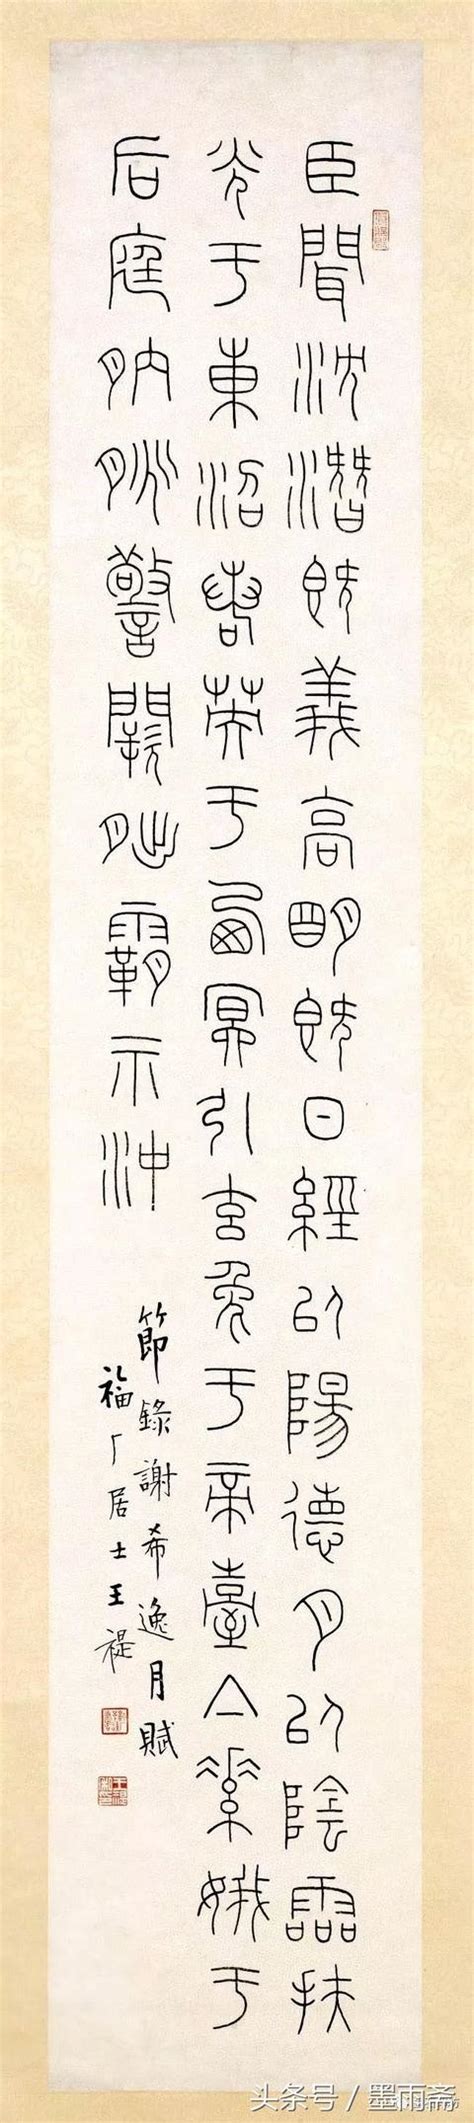 臣聞沈潛既義高明既日經以陽德月以陰霝扶
光于東沼若英于西冥引玄兔于帝臺亼素娥于
后庭朒朓警闕朏霸示沖
節錄謝希逸月賦
福厂居士王禔
头条号／墨雨斋